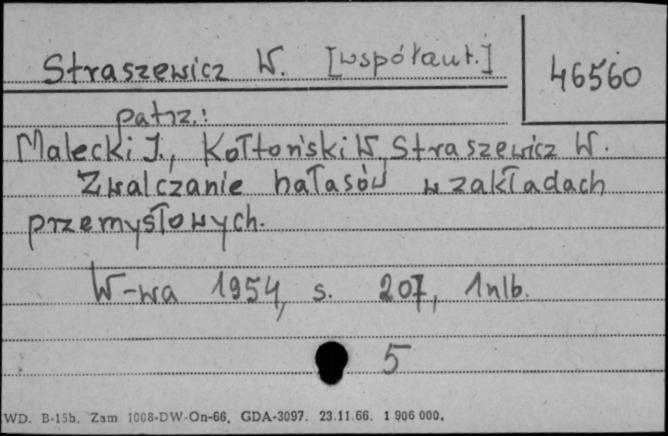 Straszewicz W. [współaut.]
46560
patrz.:
Malecki I., Kołtoński W, Straszewicz W.
Zwalczanie hałasów w zakładach
przemysłowych.
W-wa 1954, s. 207, 1nlb.
5
WD. B-15b. Zam 1008-DW-On-66. GDA-3097. 23.11.66. 1 906 000.